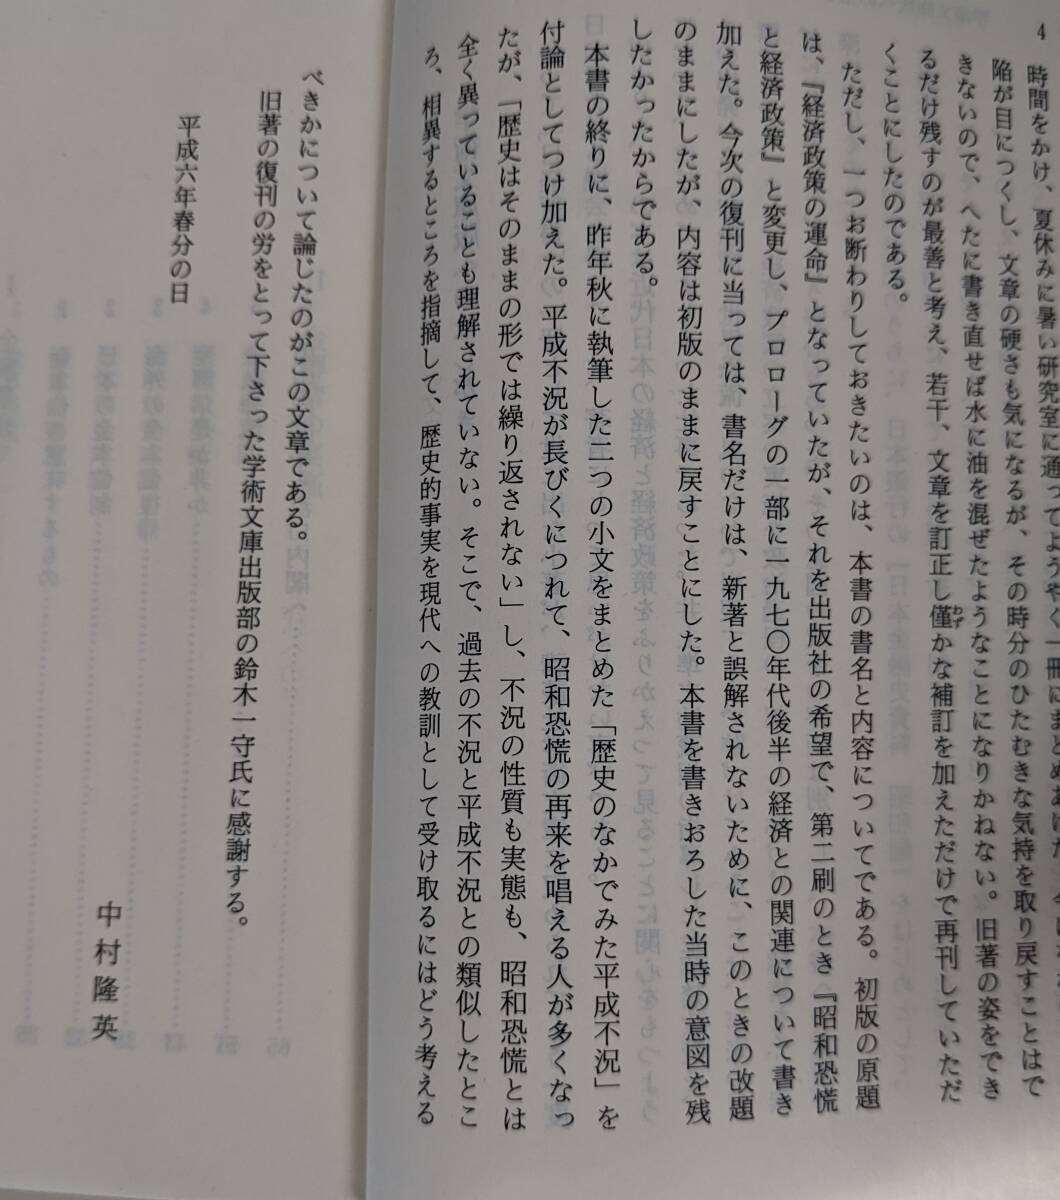 4
時間をかけ、夏休みに暑い研究室に通ってようやく一冊にまとめあげた
陥が目につくし、文章の硬さも気になるが、その時分のひたむきな気持を取り戻すことはで
きないので、へたに書き直せば水に油を混ぜたようなことになりかねない。旧著の姿をでき
るだけ残すのが最善と考え、若干、文章を訂正し僅かな補訂を加えただけで再刊していただ
くことにしたのである。
ただし、一つお断わりしておきたいのは、本書の書名と内容についてである。初版の原題
は、『経済政策の運命』となっていたが、それを出版社の希望で、第二刷のとき『昭和恐慌
と経済政策』と変更し、プロローグの一部に一九七〇年代後半の経済との関連について書き
加えた。今次の復刊に当っては、書名だけは、新著と誤解されないために、このときの改題
のままにしたが、内容は初版のままに戻すことにした。本書を書きおろした当時の意図を残
したかったからである。
本書の終りに、昨年秋に執筆した二つの小文をまとめた「歴史のなかでみた平成不況」を
付論としてつけ加えた。平成不況が長びくにつれて、昭和恐慌の再来を唱える人が多くなっ
たが、「歴史はそのままの形では繰り返されない」し、不況の性質も実態も、昭和恐慌とは
全く異っていることも理解されていない。そこで、過去の不況と平成不況との類似したとこ
ろ、相異するところを指摘して、歴史的事実を現代への教訓として受け取るにはどう考える
べきかについて論じたのがこの文章である。
旧著の復刊の労をとって下さった学術文庫出版部の鈴木一守氏に感謝する。
平成六年春分の日
中村隆英